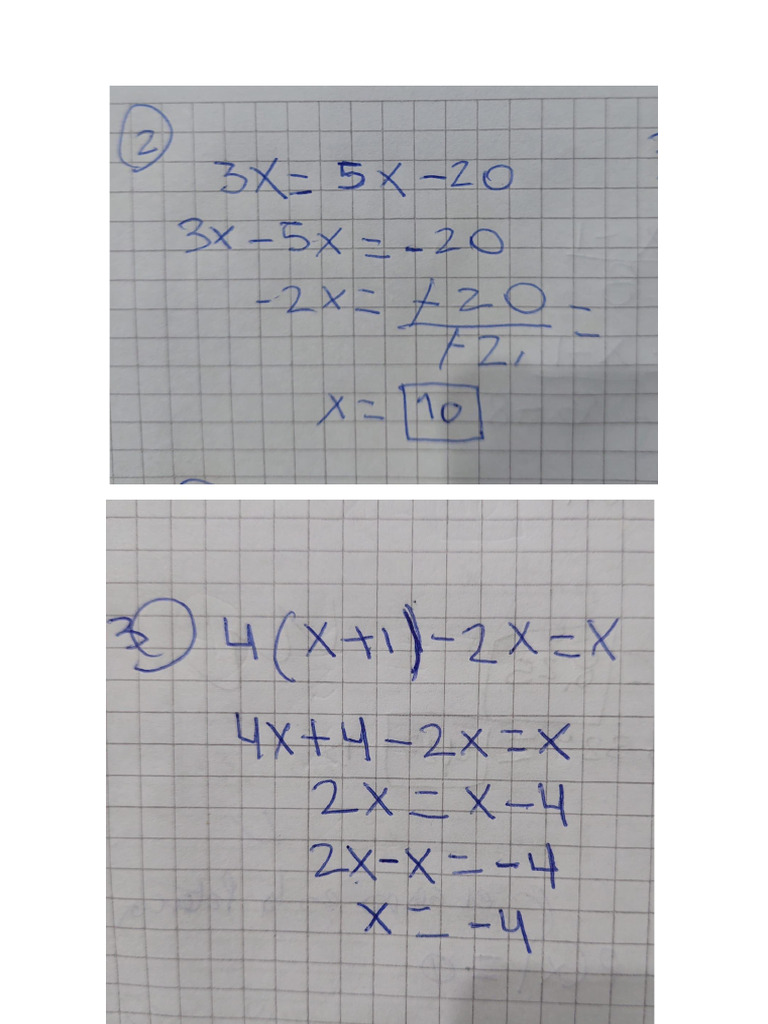 2
3x = 5x - 20
3x - 5x = -20
-2x = -20 / -2 =
x = 10
3
4(x+1) - 2x = x
4x + 4 - 2x = x
2x = x - 4
2x - x = -4
x = -4